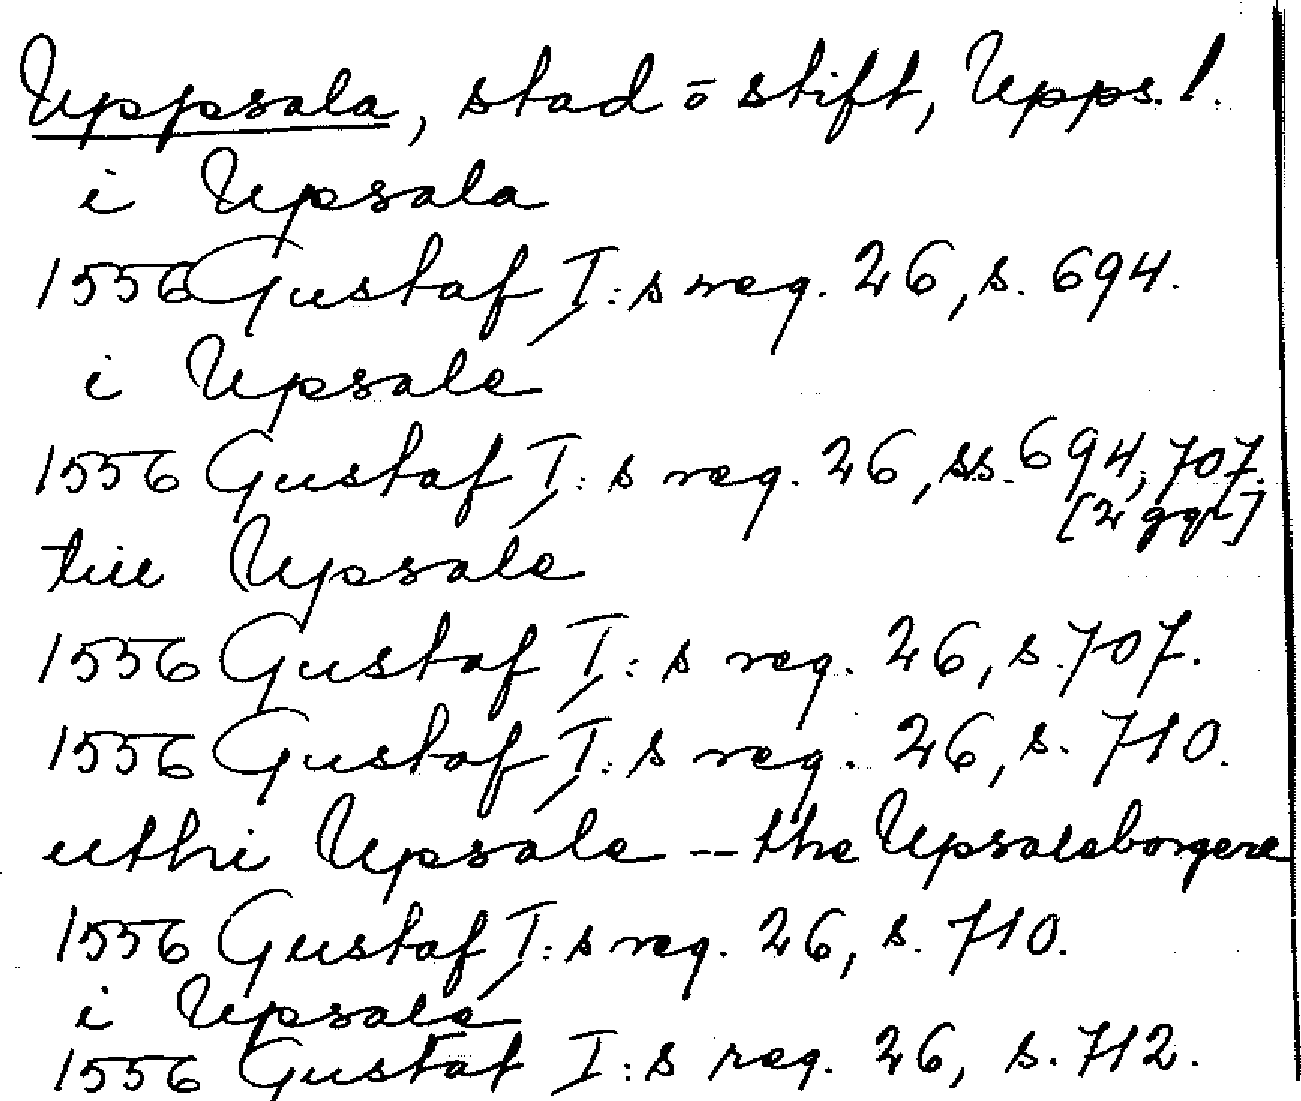 Uppsala, stad o stift, Upps. l.
i Upsala
1556 Gustaf I:s reg. 26, s. 694.
i Upsale
1556 Gustaf I:s reg. 26, ss. 694, 707.
[2 ggr]
till Upsale
1556 Gustaf I:s reg. 26, s. 707.
1556 Gustaf I:s reg. 26, s. 710.
uthi Upsale -- the Upsaleborgere
1556 Gustaf I:s reg. 26, s. 710.
i Upsale
1556 Gustaf I:s reg. 26, s. 712.